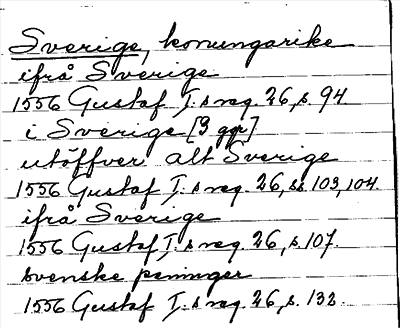 Sverige, konungarike
ifrå Sverige
1556 Gustaf I.s reg. 26, s. 94
i Sverige [3 ggr]
utöffver alt Sverige
1556 Gustaf I.s reg. 26, ss. 103, 104.
ifrå Sverige
1556 Gustaf I.s reg. 26, s. 107.
svenske peninger
1556 Gustaf I.s reg. 26, s. 132.